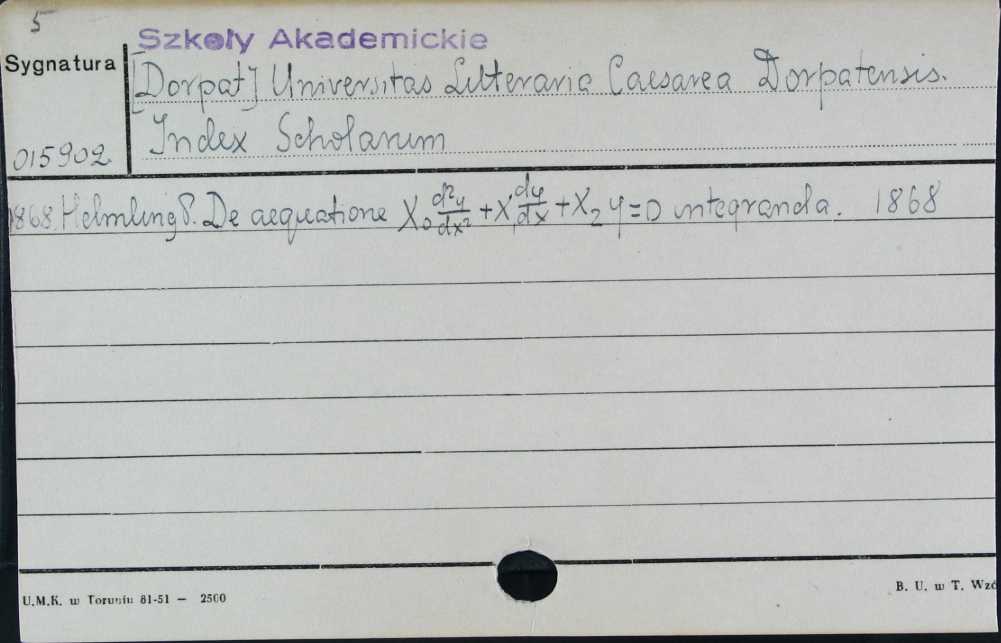 5
Szkoły Akademickie
Sygnatura
[Dorpat] Universitas Litteraria Caesarea Dorpatensis.
015902 Index Scholarum
1868. Helmling P. De aequatione X₀ d²y/dx² + X₁ dy/dx + X₂ y = 0 integranda. 1868
U.M.K. w Toruniu 81-51 — 2500
B. U. w T. Wzó